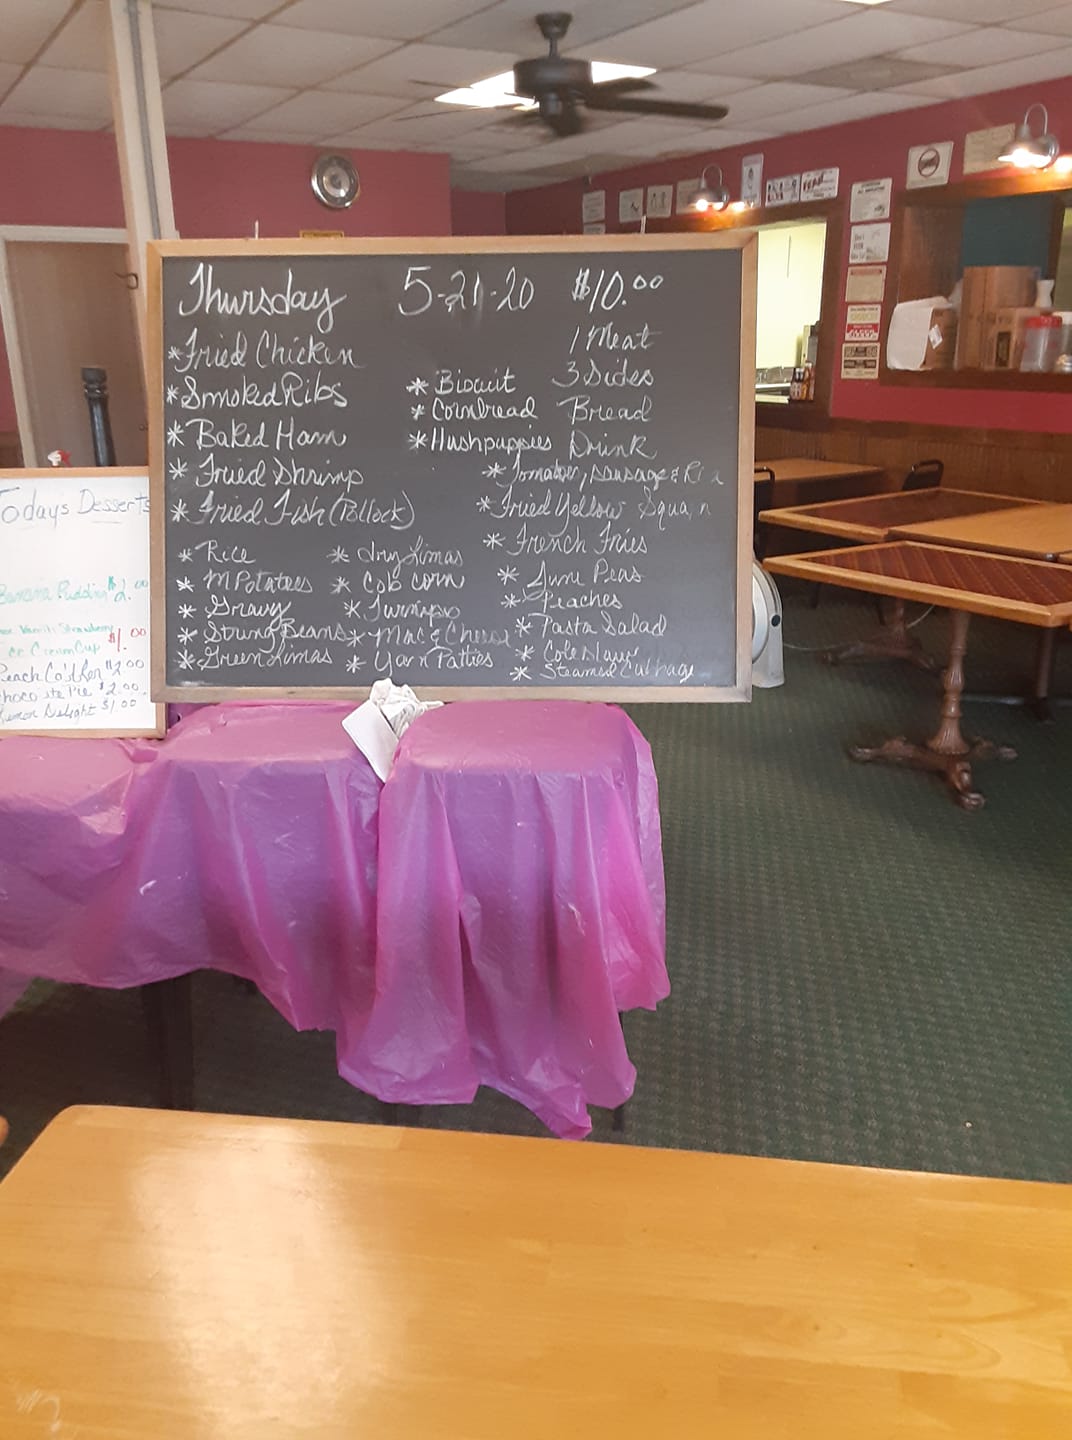 Thursday 5-21-20 $10.00
*Fried Chicken 1 Meat
*Smoked Ribs *Biscuit 3 Sides
*Baked Ham *Cornbread Bread
*Fried Shrimp *Hushpuppies Drink
*Fried Fish (Pollock)
*Tomatoes, sausage &
*Fried Yellow
*French Fries
*Rice *Dry Limas *June Peas
*M Potatoes *Cob corn *Peaches
*Gravy *Turnips *Pasta Salad
*String Beans *Mac & Cheese *Cole Slaw
*Green Limas *Yam Patties *Steamed Cabbage
Todays Desserts
Banana Puddin $2.00
Vanilla Strawberry
Cream Cup $1.00
$2.00
Pie $2.00
Delight $1.00